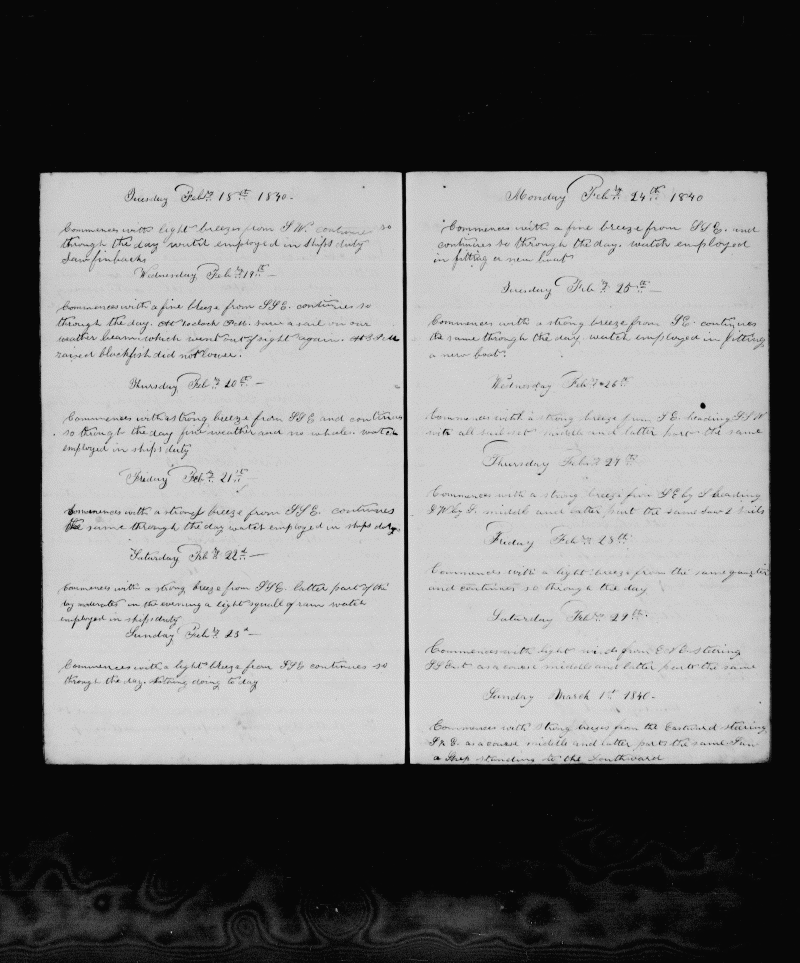 Tuesday Feby 18th 1840 -
Commences with light breezes from S W. continues so
through the day watch employed in ships duty
Saw finbacks
Wednesday Feby 19th -
Commences with a fine breeze from SSE. continues so
through the day. At 10 oclock A.M. saw a sail on our
weather beam which went out of sight again. At 3 P.M
raised blackfish did not lower.
Thursday Feby 20th -
Commences with a strong breeze from SSE and continues
so through the day fine weather and no whales watch
employed in ships duty
Friday Feby 21st -
Commences with a strong breeze from SSE. continues
the same through the day watch employed in ships duty.
Saturday Feby 22d -
Commences with a strong breeze from SSE. latter part of the
day moderates in the evening a light squall of rain watch
employed in ships duty
Sunday Feby 23d -
Commences with a light breeze from SSE continues so
through the day. Nothing doing to day
Monday Feby 24th 1840
Commences with a fine breeze from SSE. and
continues so through the day. watch employed
in fitting a new boat
Tuesday Feby 25th -
Commences with a strong breeze from SE. continues
the same through the day. watch employed in fitting
a new boat.
Wednesday Feby 26th
Commences with a strong breeze from S E. heading SSW
with all sail set middle and latter part the same
Thursday Feby 27th
Commences with a strong breeze from SE by S heading
SW by S. middle and latter part the same saw 2 sails
Friday Feby 28th
Commences with a light breeze from the same quarter
and continues so through the day
Saturday Feby 29th.
Commences with light winds from steering
as a course middle and latter parts the same
Sunday March 1st 1840 -
Commences with strong breezes from the Eastward steering
as a course middle and latter parts the same Saw
a Ship standing to the Southward